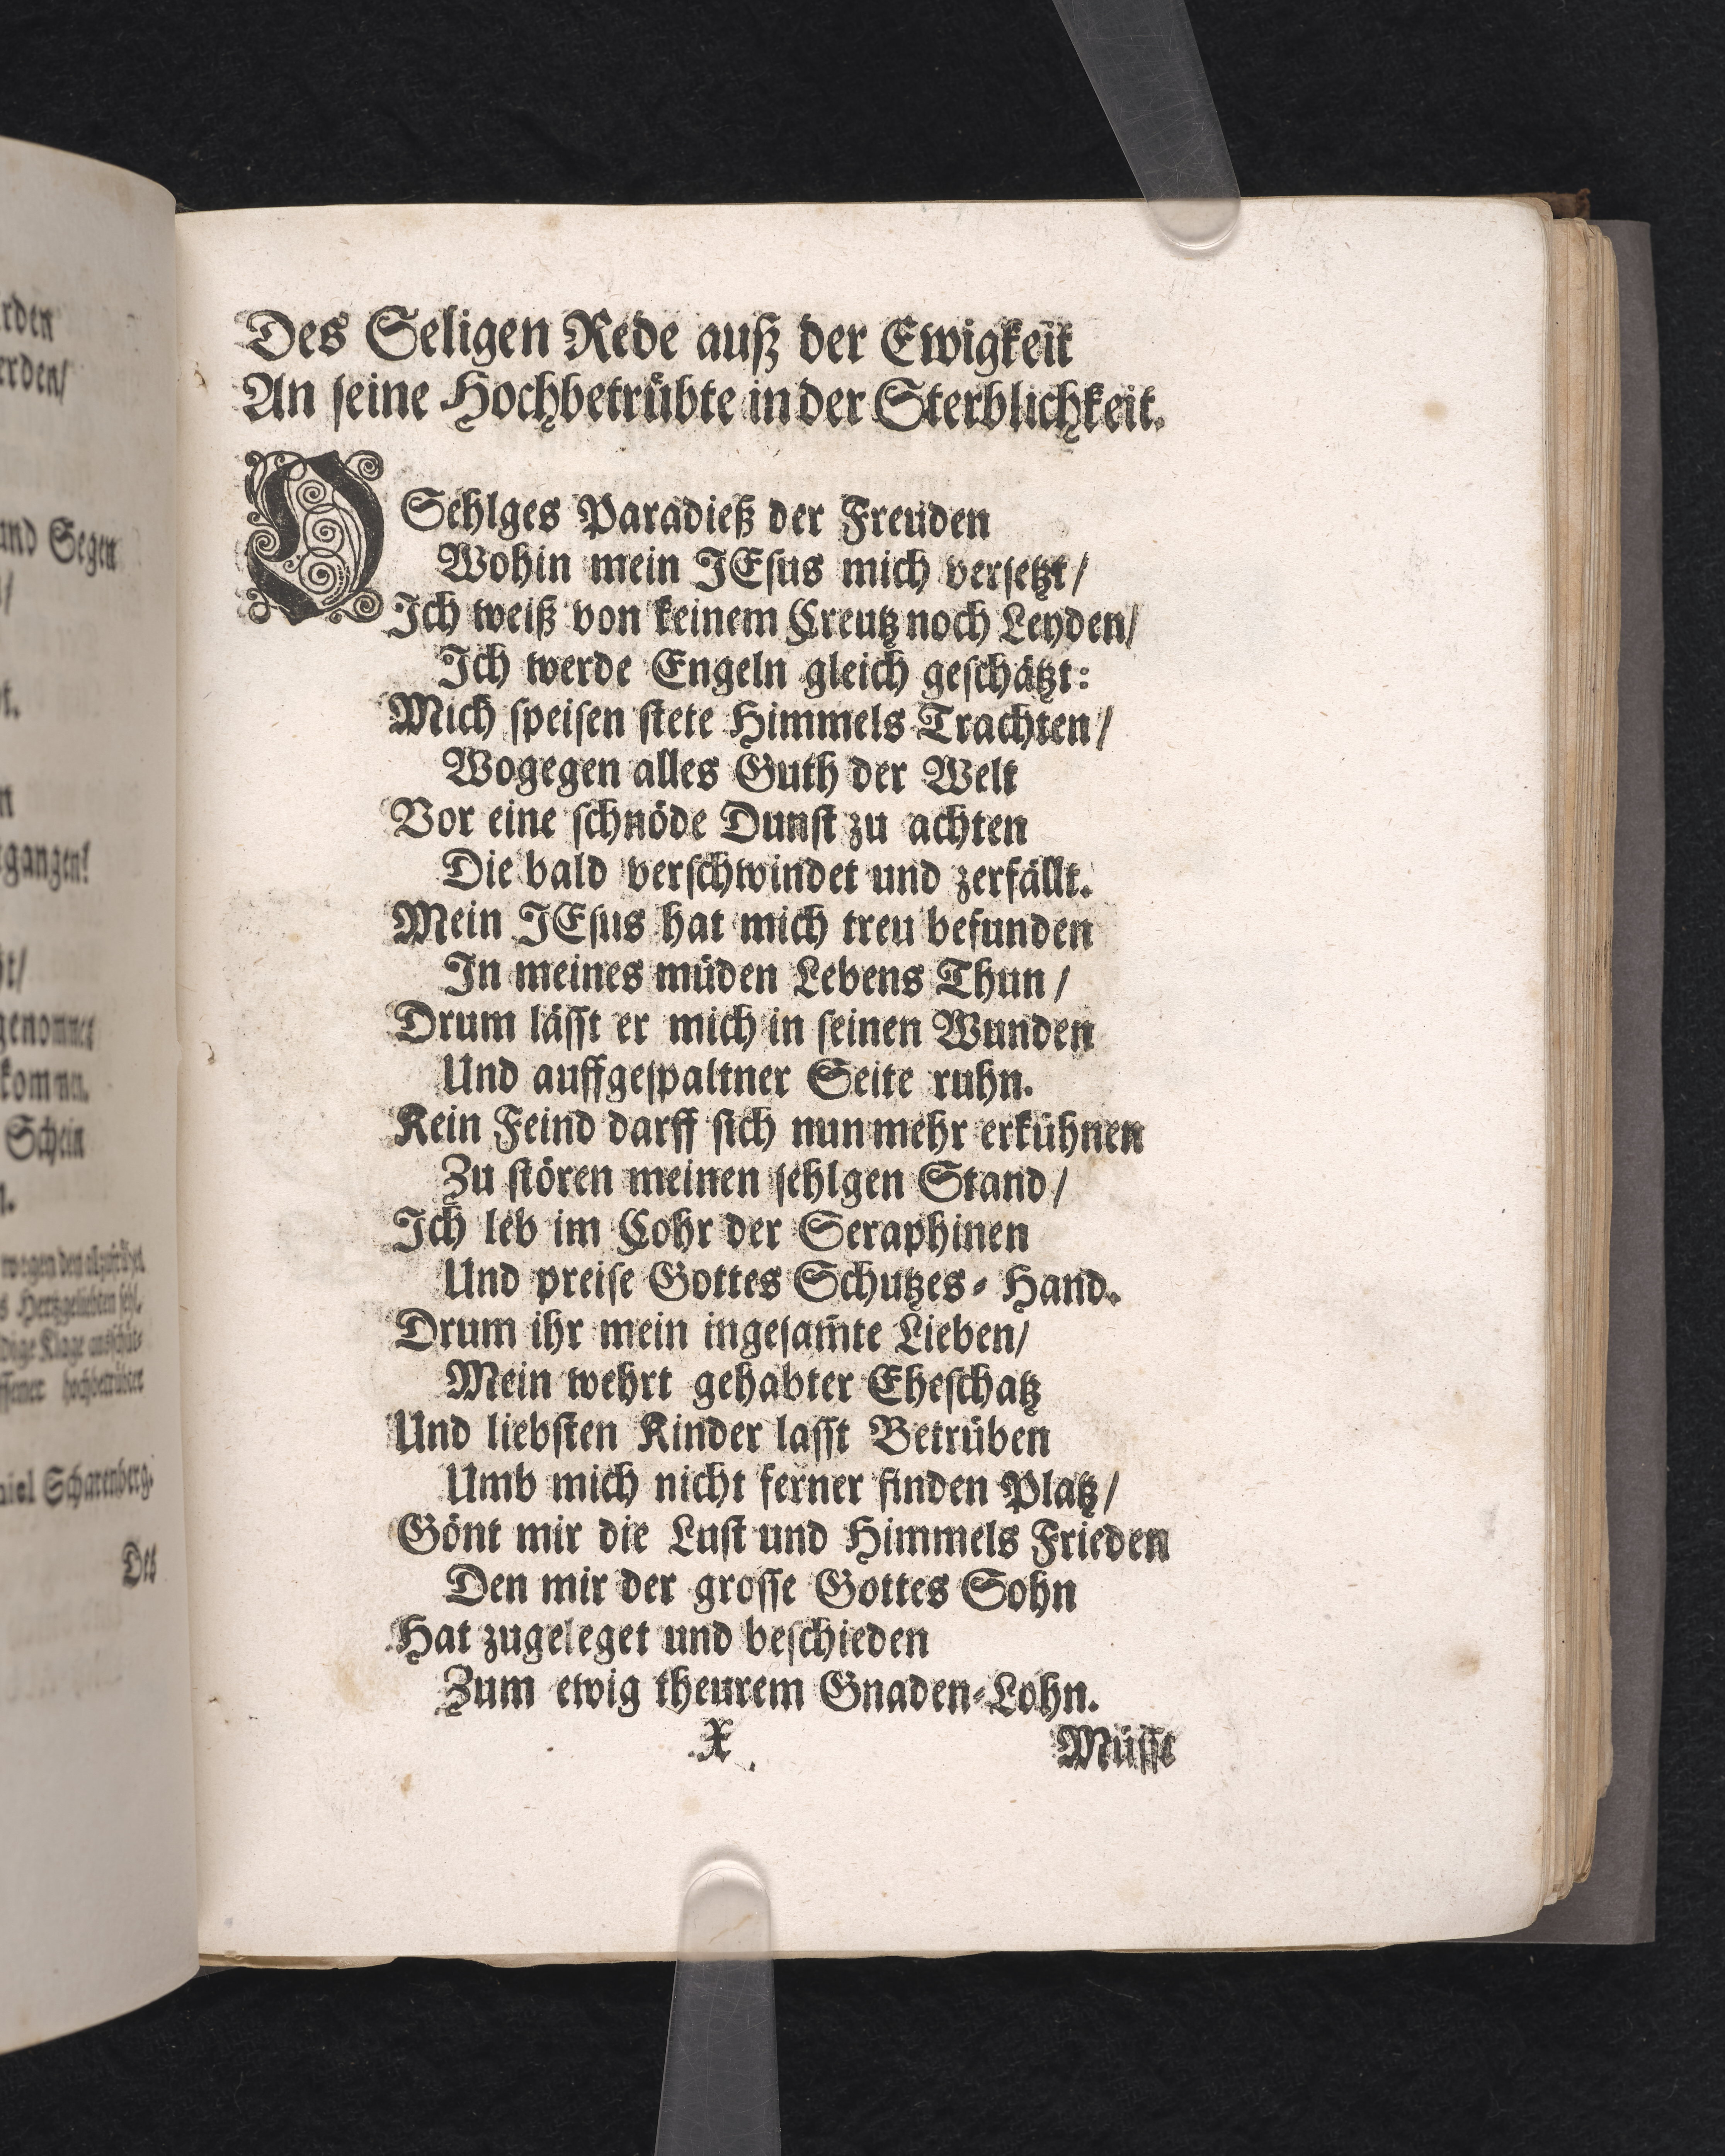 rden
erden/
und Segen
gangen!
genommet
kommn.
Schein
wegen den
s Hertzgeliebten sehl.
dige Klage
hochbetrübter
niel Scharenberg.
Des
Des Seligen Rede auß der Ewigkeit
An seine Hochbetrübte in der Sterblichkeit.
O Sehlges Paradieß der Freuden
Wohin mein JEsus mich versetzt/
Ich weiß von keinem Creutz noch Leyden/
Ich werde Engeln gleich geschätzt:
Mich speisen stete Himmels Trachten/
Wogegen alles Guth der Welt
Vor eine schnöde Dunst zu achten
Die bald verschwindet und zerfällt.
Mein JEsus hat mich treu befunden
In meines müden Lebens Thun/
Drum lässt er mich in seinen Wunden
Und auffgespaltner Seite ruhn.
Kein Feind darff sich nunmehr erkühnen
Zu stören meinen sehlgen Stand/
Ich leb im Cohr der Seraphinen
Und preise Gottes Schutzes-Hand.
Drum ihr mein ingesam̃te Lieben/
Mein wehrt gehabter Eheschatz
Und liebsten Kinder lasst Betrüben
Umb mich nicht ferner finden Platz/
Gönt mir die Lust und Himmels Frieden
Den mir der grosse Gottes Sohn
Hat zugeleget und beschieden
Zum ewig theurem Gnaden-Lohn.
X
Müsst